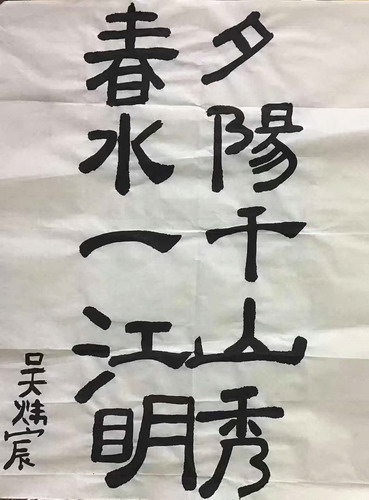 夕陽千山秀
春水一江明
吴炜宸